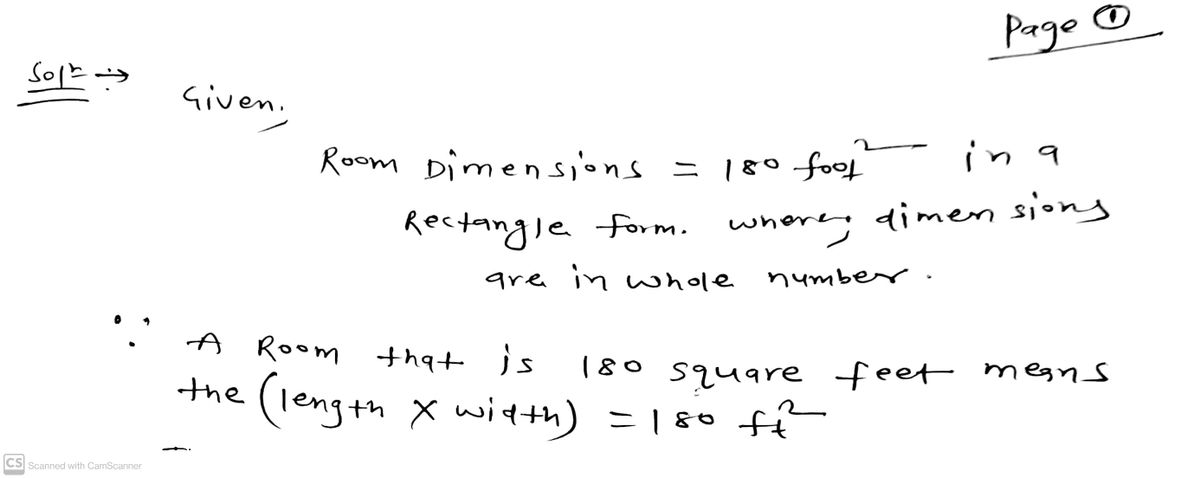 Page ①
Solⁿ ∹→ Given,
Room Dimensions = 180 foot² in a
Rectangle form. where, dimensions
are in whole number.
∵ A Room that is 180 square feet means
the (length × width) = 180 ft²
CS Scanned with CamScanner